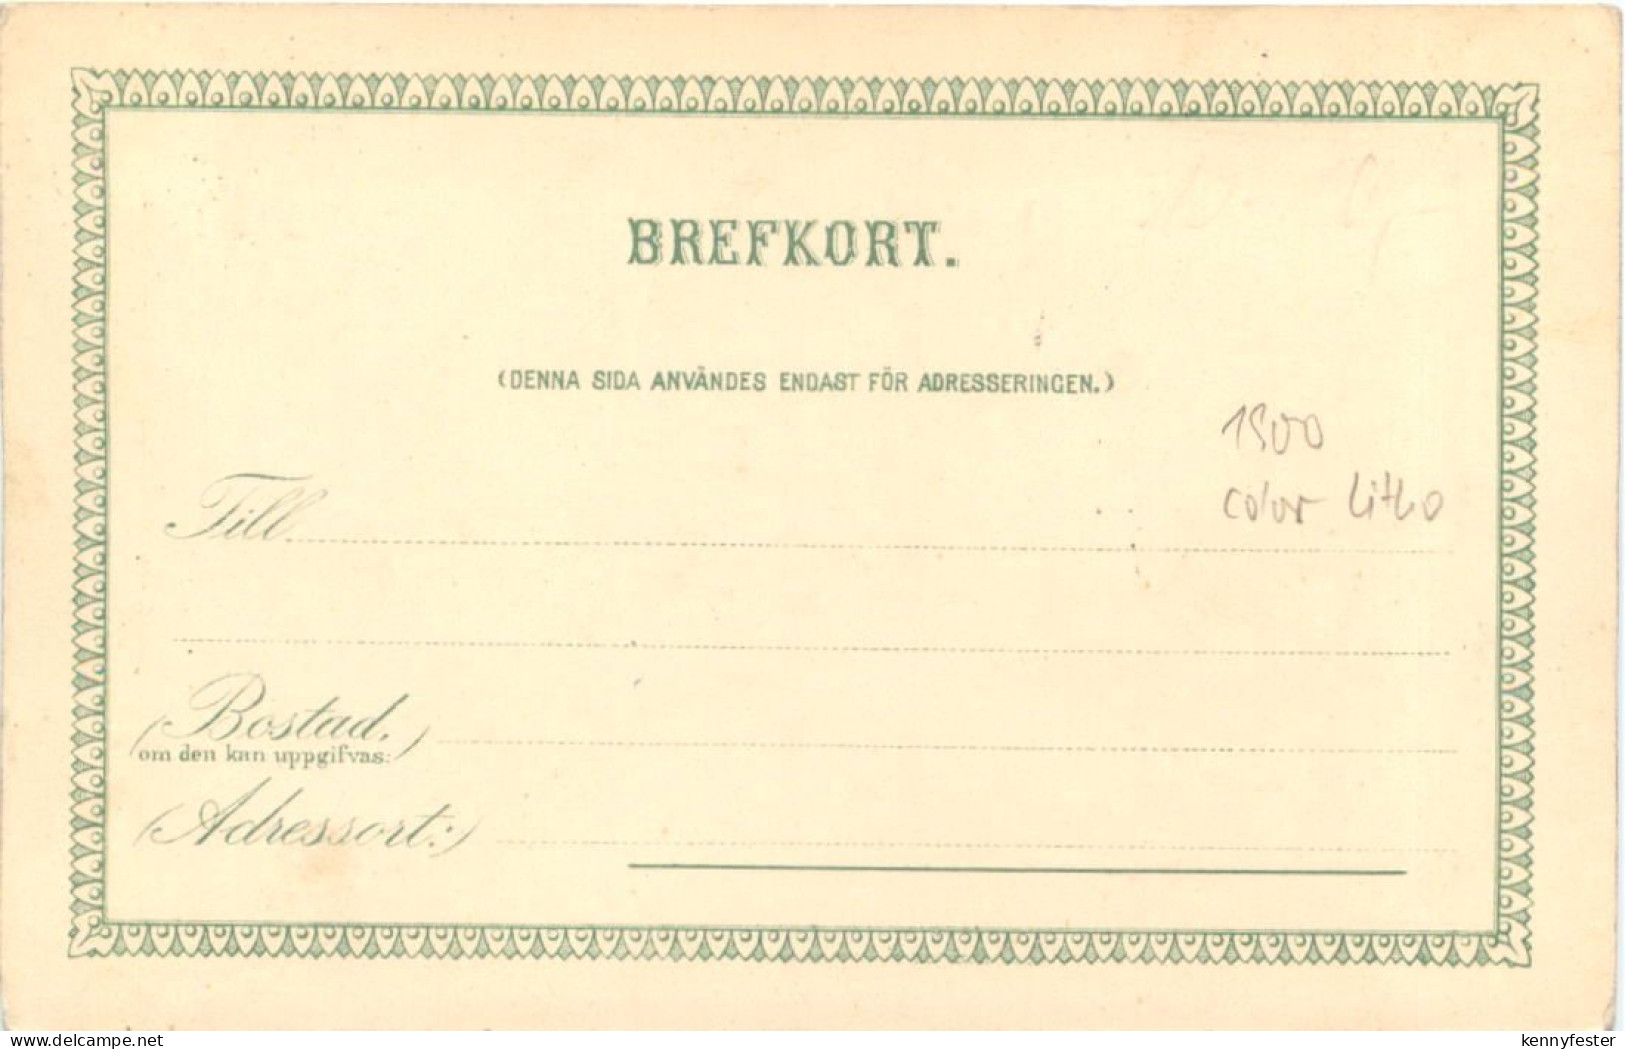 BREFKORT.
(DENNA SIDA ANVÄNDES ENDAST FÖR ADRESSERINGEN.)
1900
color Litho
Till
Bostad.
(om den kan uppgifvas:)
(Adressort:)
www.delcampe.net
kennyfester